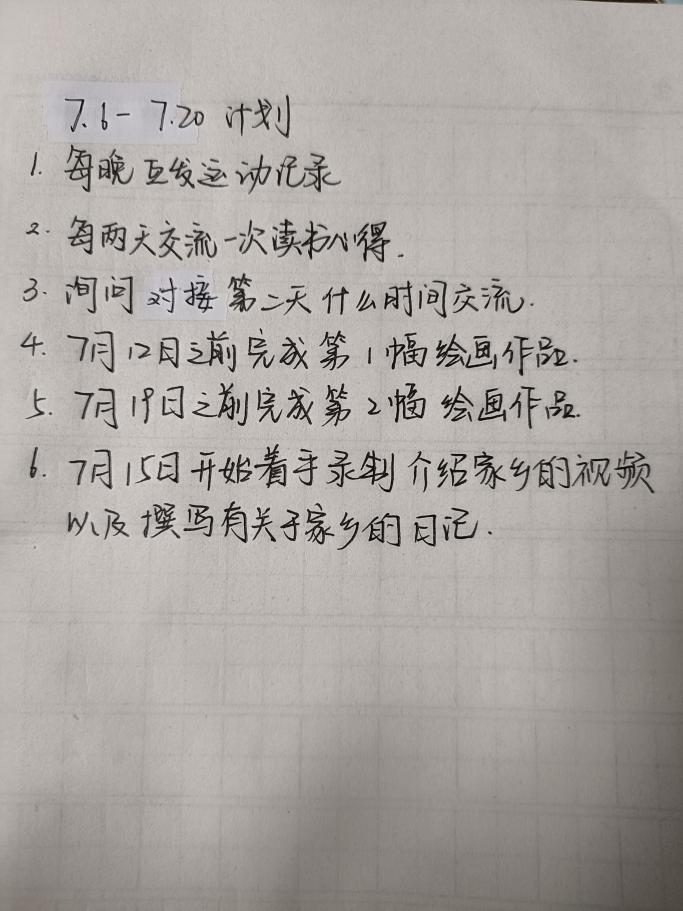 7.6-7.20 计划
1. 每晚互发运动记录
2. 每两天交流一次读书心得.
3. 询问对接第二天什么时间交流.
4. 7月12日之前完成第1幅绘画作品.
5. 7月19日之前完成第2幅绘画作品.
6. 7月15日开始着手录制介绍家乡的视频
以及撰写有关于家乡的日记.